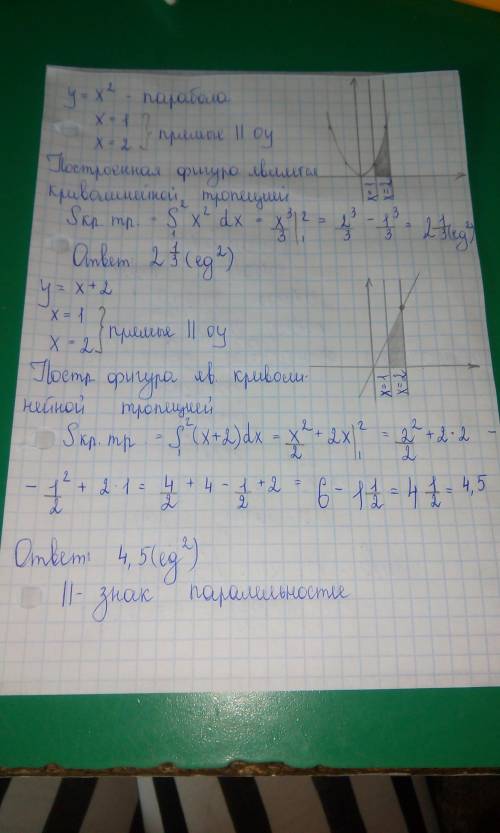 y = x² - парабола
x = 1
x = 2 } прямые || оу
x=1
x=2
Построенная фигура является
криволинейной тропецией
Sкр. тр. = ∫₁² x² dx = x³/3 |₁² = 2³/3 - 1³/3 = 2 1/3 (ед²)
Ответ: 2 1/3 (ед²)
y = x+2
x = 1
x = 2 } прямые || оу
x=1
x=2
Постр фигура яв. криволи-
нейной тропецией
Sкр. тр = ∫₁² (x+2)dx = x²/2 + 2x |₁² = 2²/2 + 2·2 -
- 1²/2 + 2·1 = 4/2 + 4 - 1/2 + 2 = 6 - 1 1/2 = 4 1/2 = 4,5
Ответ: 4,5 (ед²)
||- знак паралельностьи